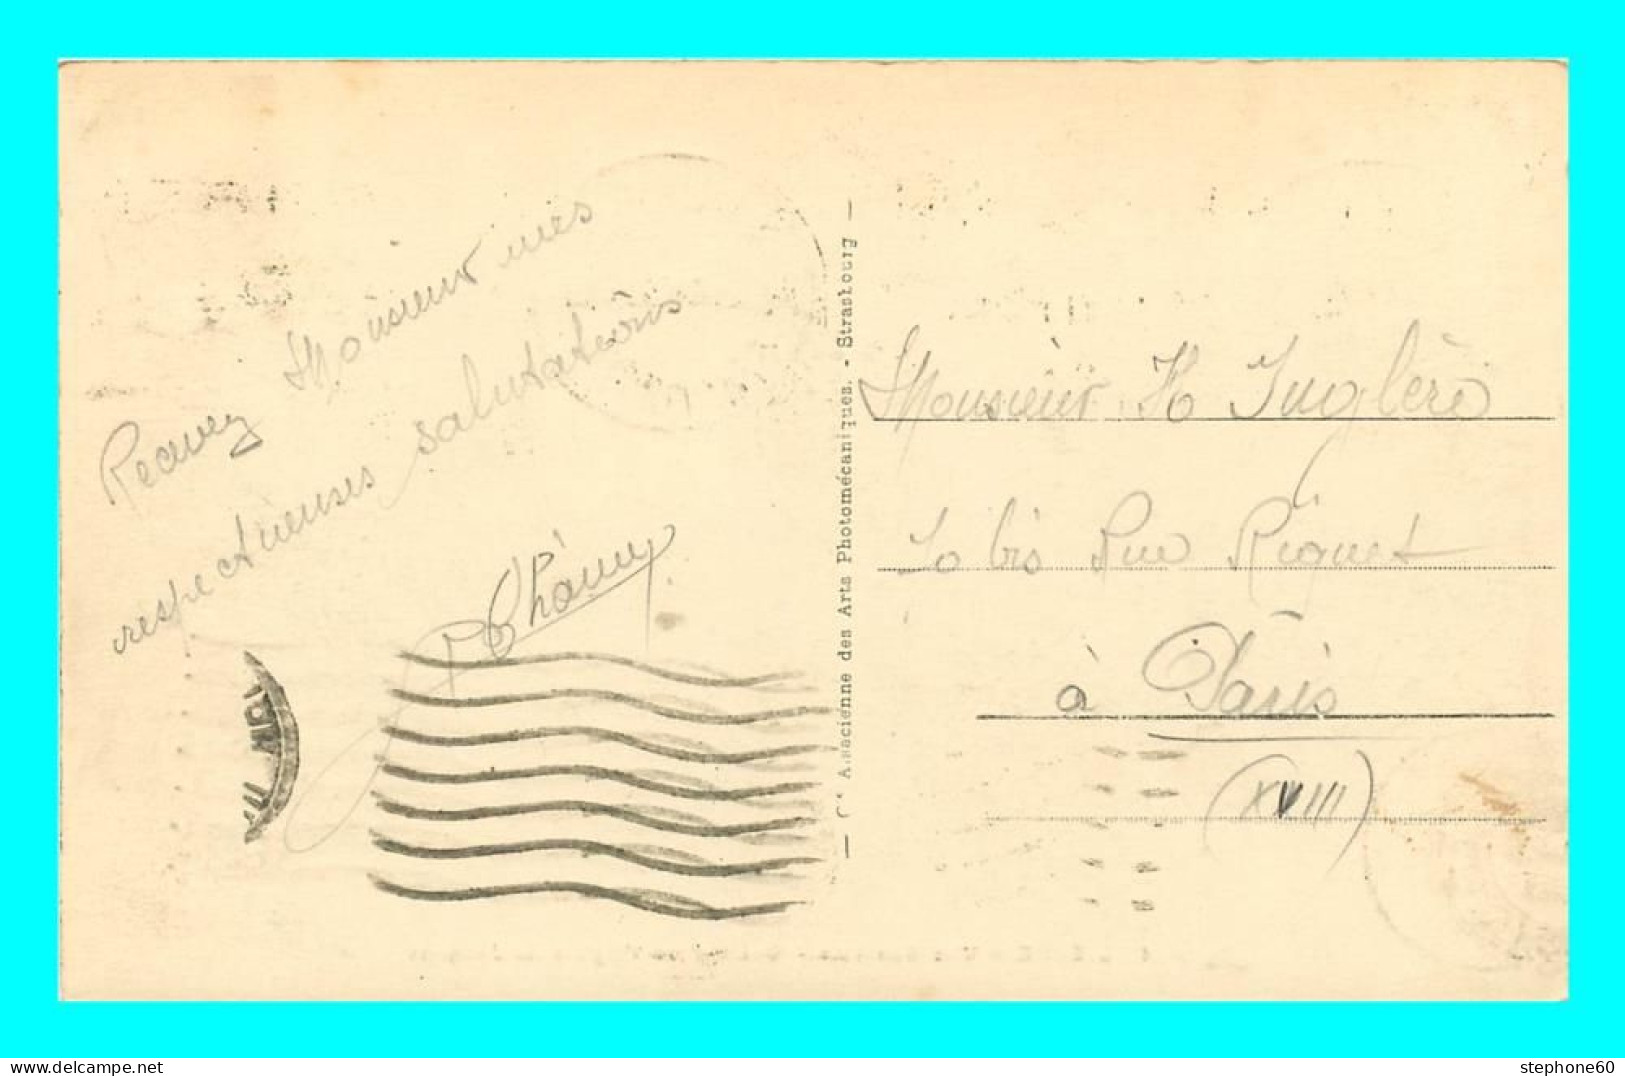 Recevez Monsieur mes
respectueuses salutations
— Cie Alsacienne des Arts Photomécaniques. - Strasbourg —
Monsieur H
10 bis Rue Riquet
à Paris
(XVIII)
stephone60